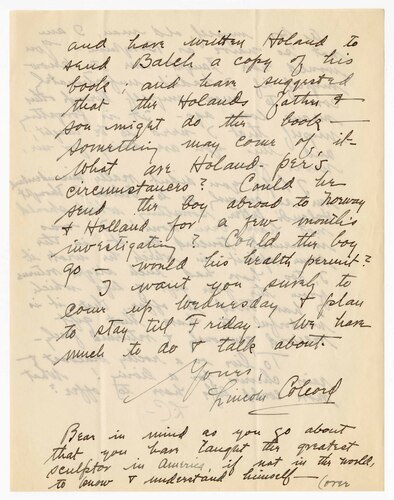 and have written Holand to
send Balch a copy of his
book; and have suggested
that the Holands father &
son might do the book —
something may come of it.
What are Holand-pèr's
circumstances? Could he
send the boy abroad to Norway
& Holland for a few months
investigating? Could the boy
go — would his health permit?
I want you surely to
come up Wednesday & plan
to stay till Friday. We have
much to do & talk about.
Yours,
Lincoln Colcord
Bear in mind as you go about
that you have taught the greatest
sculptor in America, if not in the world,
to know & understand himself — (over